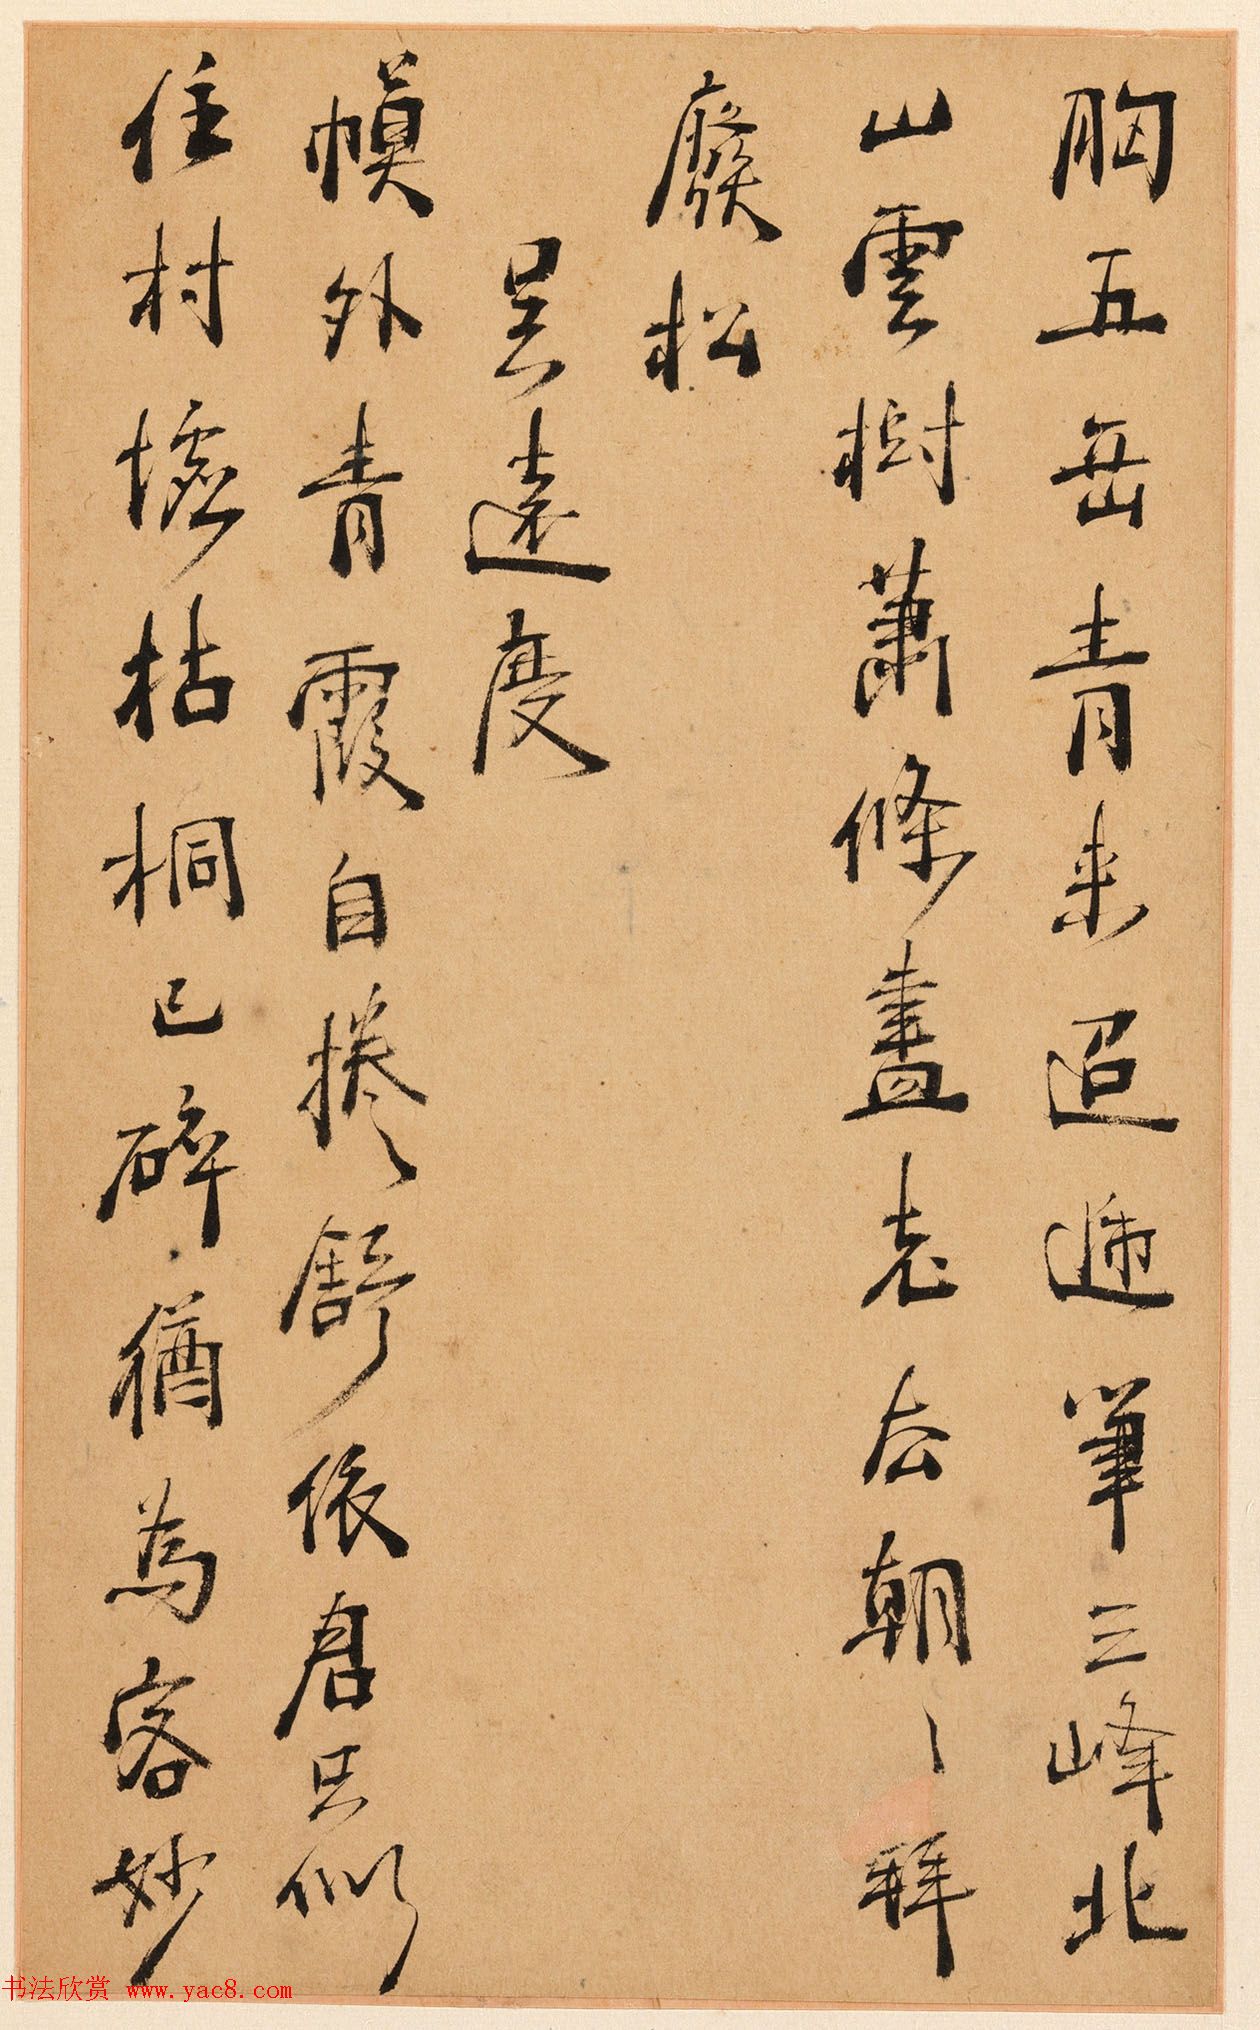 胸五岳青来迢递筆三峰北
山雲樹蕭條盡老去朝〻拜
廢松
吴遠度
幙外青霞自捲舒依君只似
住村墟枯桐已碎猶為客妙
书法欣赏 www.yac8.com